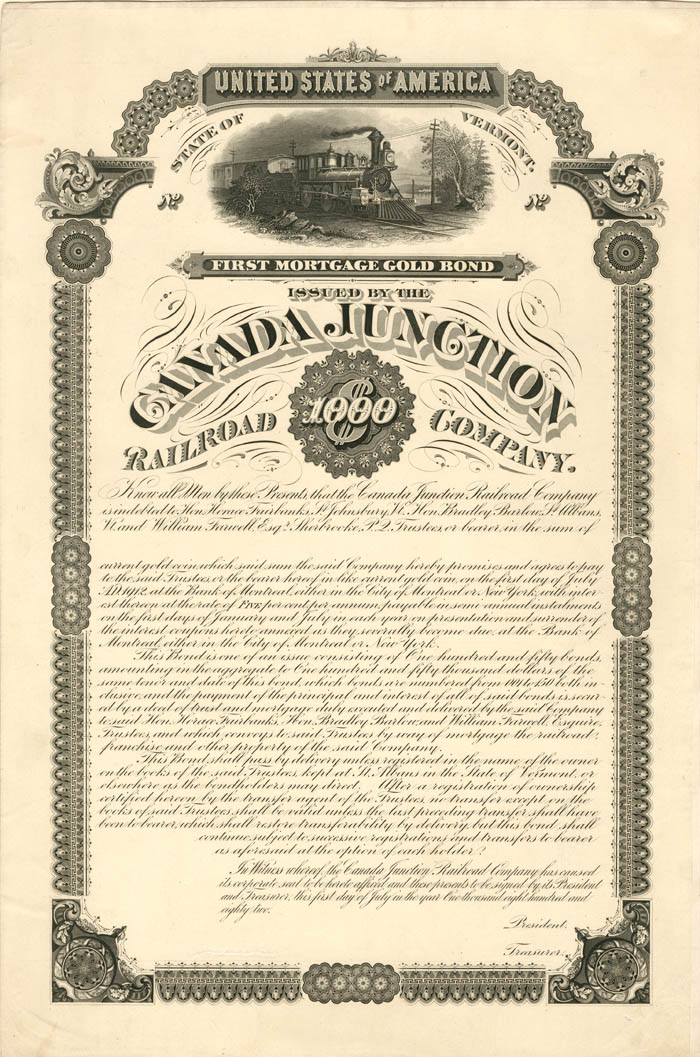 UNITED STATES OF AMERICA
STATE OF VERMONT.
No No
FIRST MORTGAGE GOLD BOND
ISSUED BY THE
CANADA JUNCTION
$1000
RAILROAD COMPANY.
Know all Men by these Presents, that the Canada Junction Railroad Company
is indebted to Hon. Horace Fairbanks, St. Johnsbury, Vt. Hon. Bradley Barlow, St. Albans,
Vt. and William Farwell, Esqr. Sherbrooke, P.Q. Trustees, or bearer, in the sum of
current gold coin, which said sum the said Company hereby promises and agrees to pay
to the said Trustees, or the bearer hereof in like current gold coin, on the first day of July
A.D. 1912, at the Bank of Montreal, either in the City of Montreal or New York, with inter-
est thereon at the rate of FIVE per cent. per annum, payable in semi annual instalments
on the first days of January and July in each year on presentation and surrender of
the interest coupons hereto annexed as they severally become due, at the Bank of
Montreal, either in the City of Montreal or New York.
This Bond is one of an issue consisting of One hundred and fifty bonds,
amounting in the aggregate to One hundred and fifty thousand dollars of the
same tenor and date of this bond, which bonds are numbered from 001 to 150 both in-
clusive, and the payment of the principal and interest of all of said bonds is secur-
ed by a deed of trust and mortgage duly executed and delivered by the said Company
to said Hon. Horace Fairbanks, Hon. Bradley Barlow, and William Farwell, Esquire,
Trustees, and which conveys to said Trustees by way of mortgage the railroad
franchise and other property of the said Company.
This Bond shall pass by delivery unless registered in the name of the owner
on the books of the said Trustees, kept at St. Albans in the State of Vermont, or
elsewhere as the bondholders may direct. After a registration of ownership
certified hereon by the transfer agent of the Trustees, no transfer except on the
books of said Trustees, shall be valid unless the last preceding transfer shall have
been to bearer, which shall restore transferability by delivery, but this bond shall
continue subject to successive registrations and transfers to bearer
as aforesaid at the option of each holder.
In Witness whereof the Canada Junction Railroad Company has caused
its corporate seal to be hereto affixed and these presents to be signed by its President
and Treasurer, this first day of July in the year One thousand eight hundred and
eighty two.
President.
Treasurer.